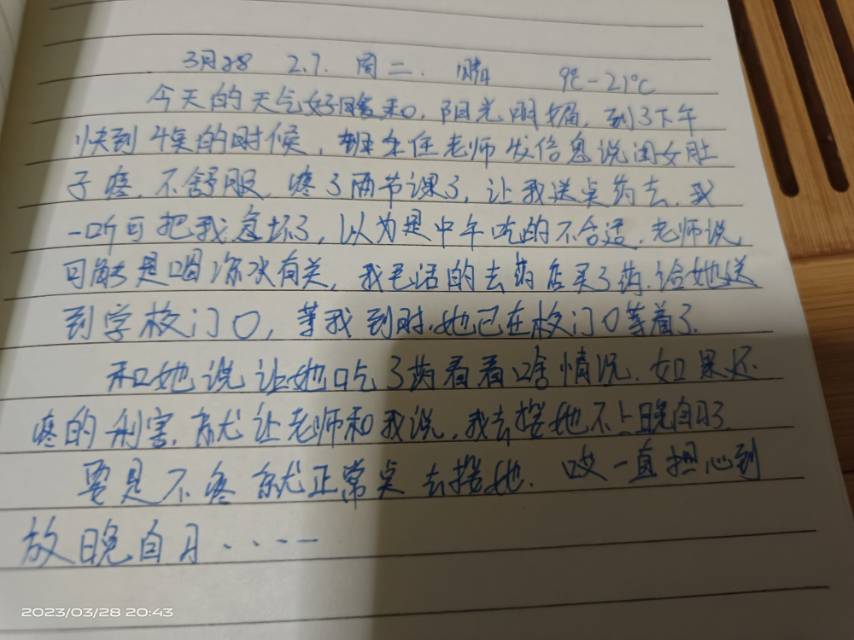 3月28 2.7. 周二. 晴 9℃-21℃
今天的天气好暖和, 阳光明媚, 到了下午
快到4点的时候, 班主任老师发信息说闺女肚
子疼, 不舒服, 疼了两节课了, 让我送点药去, 我
一听可把我急坏了, 以为是中午吃的不合适, 老师说,
可能是喝凉水有关, 我二话的去药店买了药, 给她送
到学校门口, 等我到时, 她已在校门口等着了.
和她说让她吃了药看看啥情况, 如果还
疼的利害, 就让老师和我说, 我去接她不上晚自习了
要是不疼就正常点去接她. 哎一直担心到
放晚自习.....
2023/03/28 20:43